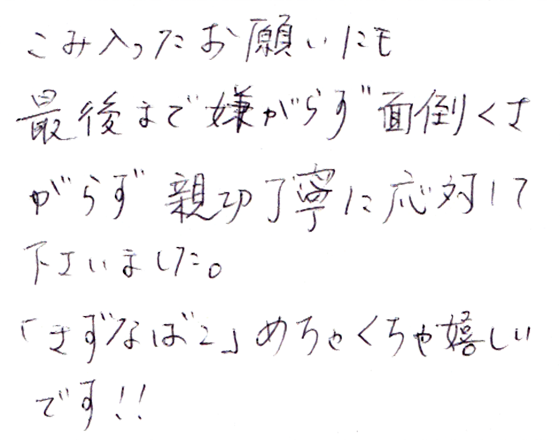 こみ入ったお願いにも
最後まで嫌がらず面倒くさ
がらず親切丁寧に応対して
下さいました。
「きずなばこ」めちゃくちゃ嬉しい
です!!